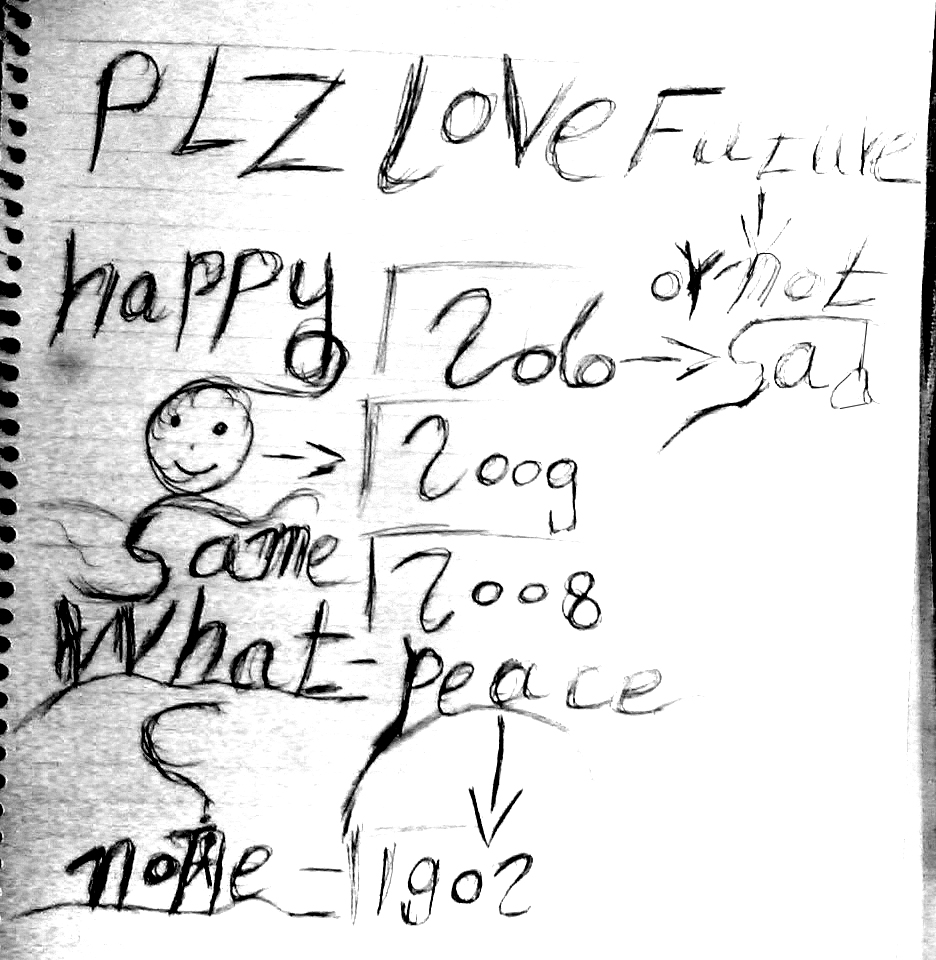 PLZ Love Future
happy 206 or not
→ sad
→ 2009
Same 2008
What - peace
none - 1902